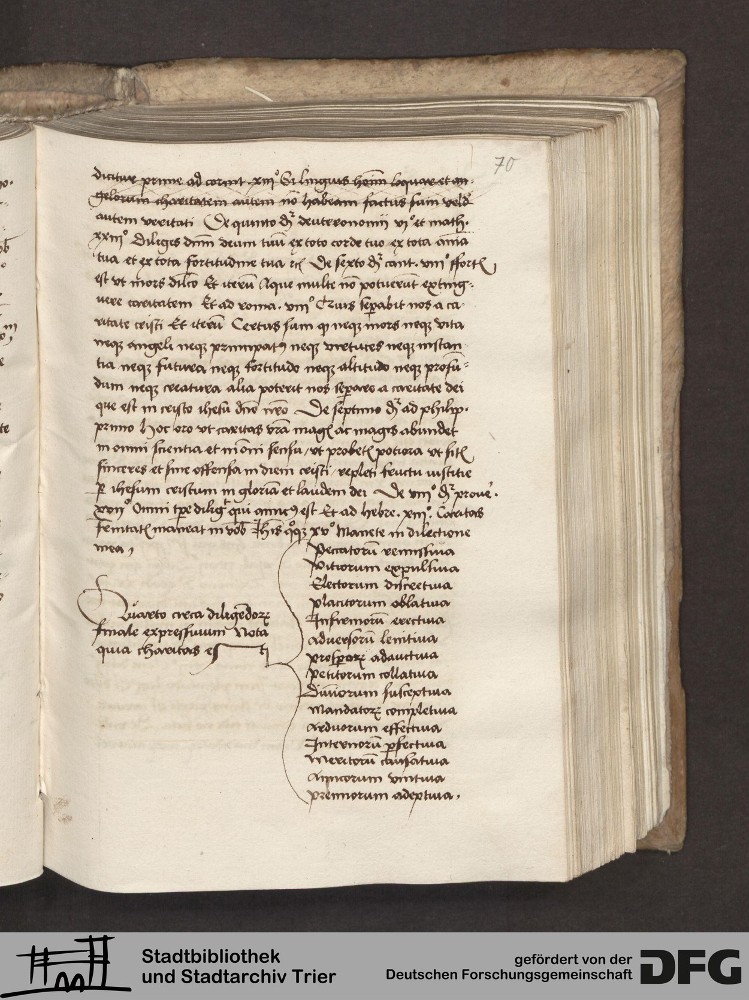 70
dicitur prime ad corint. xiij° Si linguis hōīm loquar et an-
gelorum charitatem autem nō habeam factus sum velud
autem veritati De quinto dr̄ deuteronomii vi° et math.
xxij° Diliges dnm̄ deum tuū ex toto corde tuo ex tota aīma
tua et ex tota fortitudine tua De sexto dr̄ cant. viij° ffortis
est vt mors dilc̄o Et iterū Aque multe nō potuerūt exting-
uere caritatem Et ad roma. viij° Quis sepabit nos a ca-
ritate cristi Et iterū Certus sum q neque mors neque vita
neque angeli neque principatus neque virtutes neque instan-
tia neque futura neque fortitudo neque altitudo neque profū-
dum neque creatura alia poterit nos separe a caritate dei
que est in cristo ihesu dn̄o nr̄o De septimo dr̄ ad philip.
primo hoc oro vt caritas vrā magis ac magis abundet
in omni scientia et in oīni sensu vt probetis potiora vt sitis
sinceres et sine offensa in diem cristi repleti fructu iusticie
p ihesum cristum in gloriā et laudem dei De viij° dr̄ prouē.
xvij° Omni tpe diligit qui amicus est Et ad hebre. xiij° Caritas
fr̄nitatis maneat in vobis Ihīs xv° Manete in dilectione
mea,
Quarto circa diligendorum
finale expressiuum Nota
quia charitas est
Peccatorū remissiua
Vitiorum expulsiua
Electorum discretiua
Placitorum oblatiua
Infirmorū erectiua
Aduersorū lenitiua
Prosperorum adauctiua
Petitorum collatiua
Diuiorum susceptiua
Mandatorum completiua
Arduorum effectiua
Internorū perfectiua
Meritorū causatiua
Amicorum vnitiua
Premiorum adeptiua,
Stadtbibliothek
und Stadtarchiv Trier
gefördert von der
Deutschen Forschungsgemeinschaft
DFG